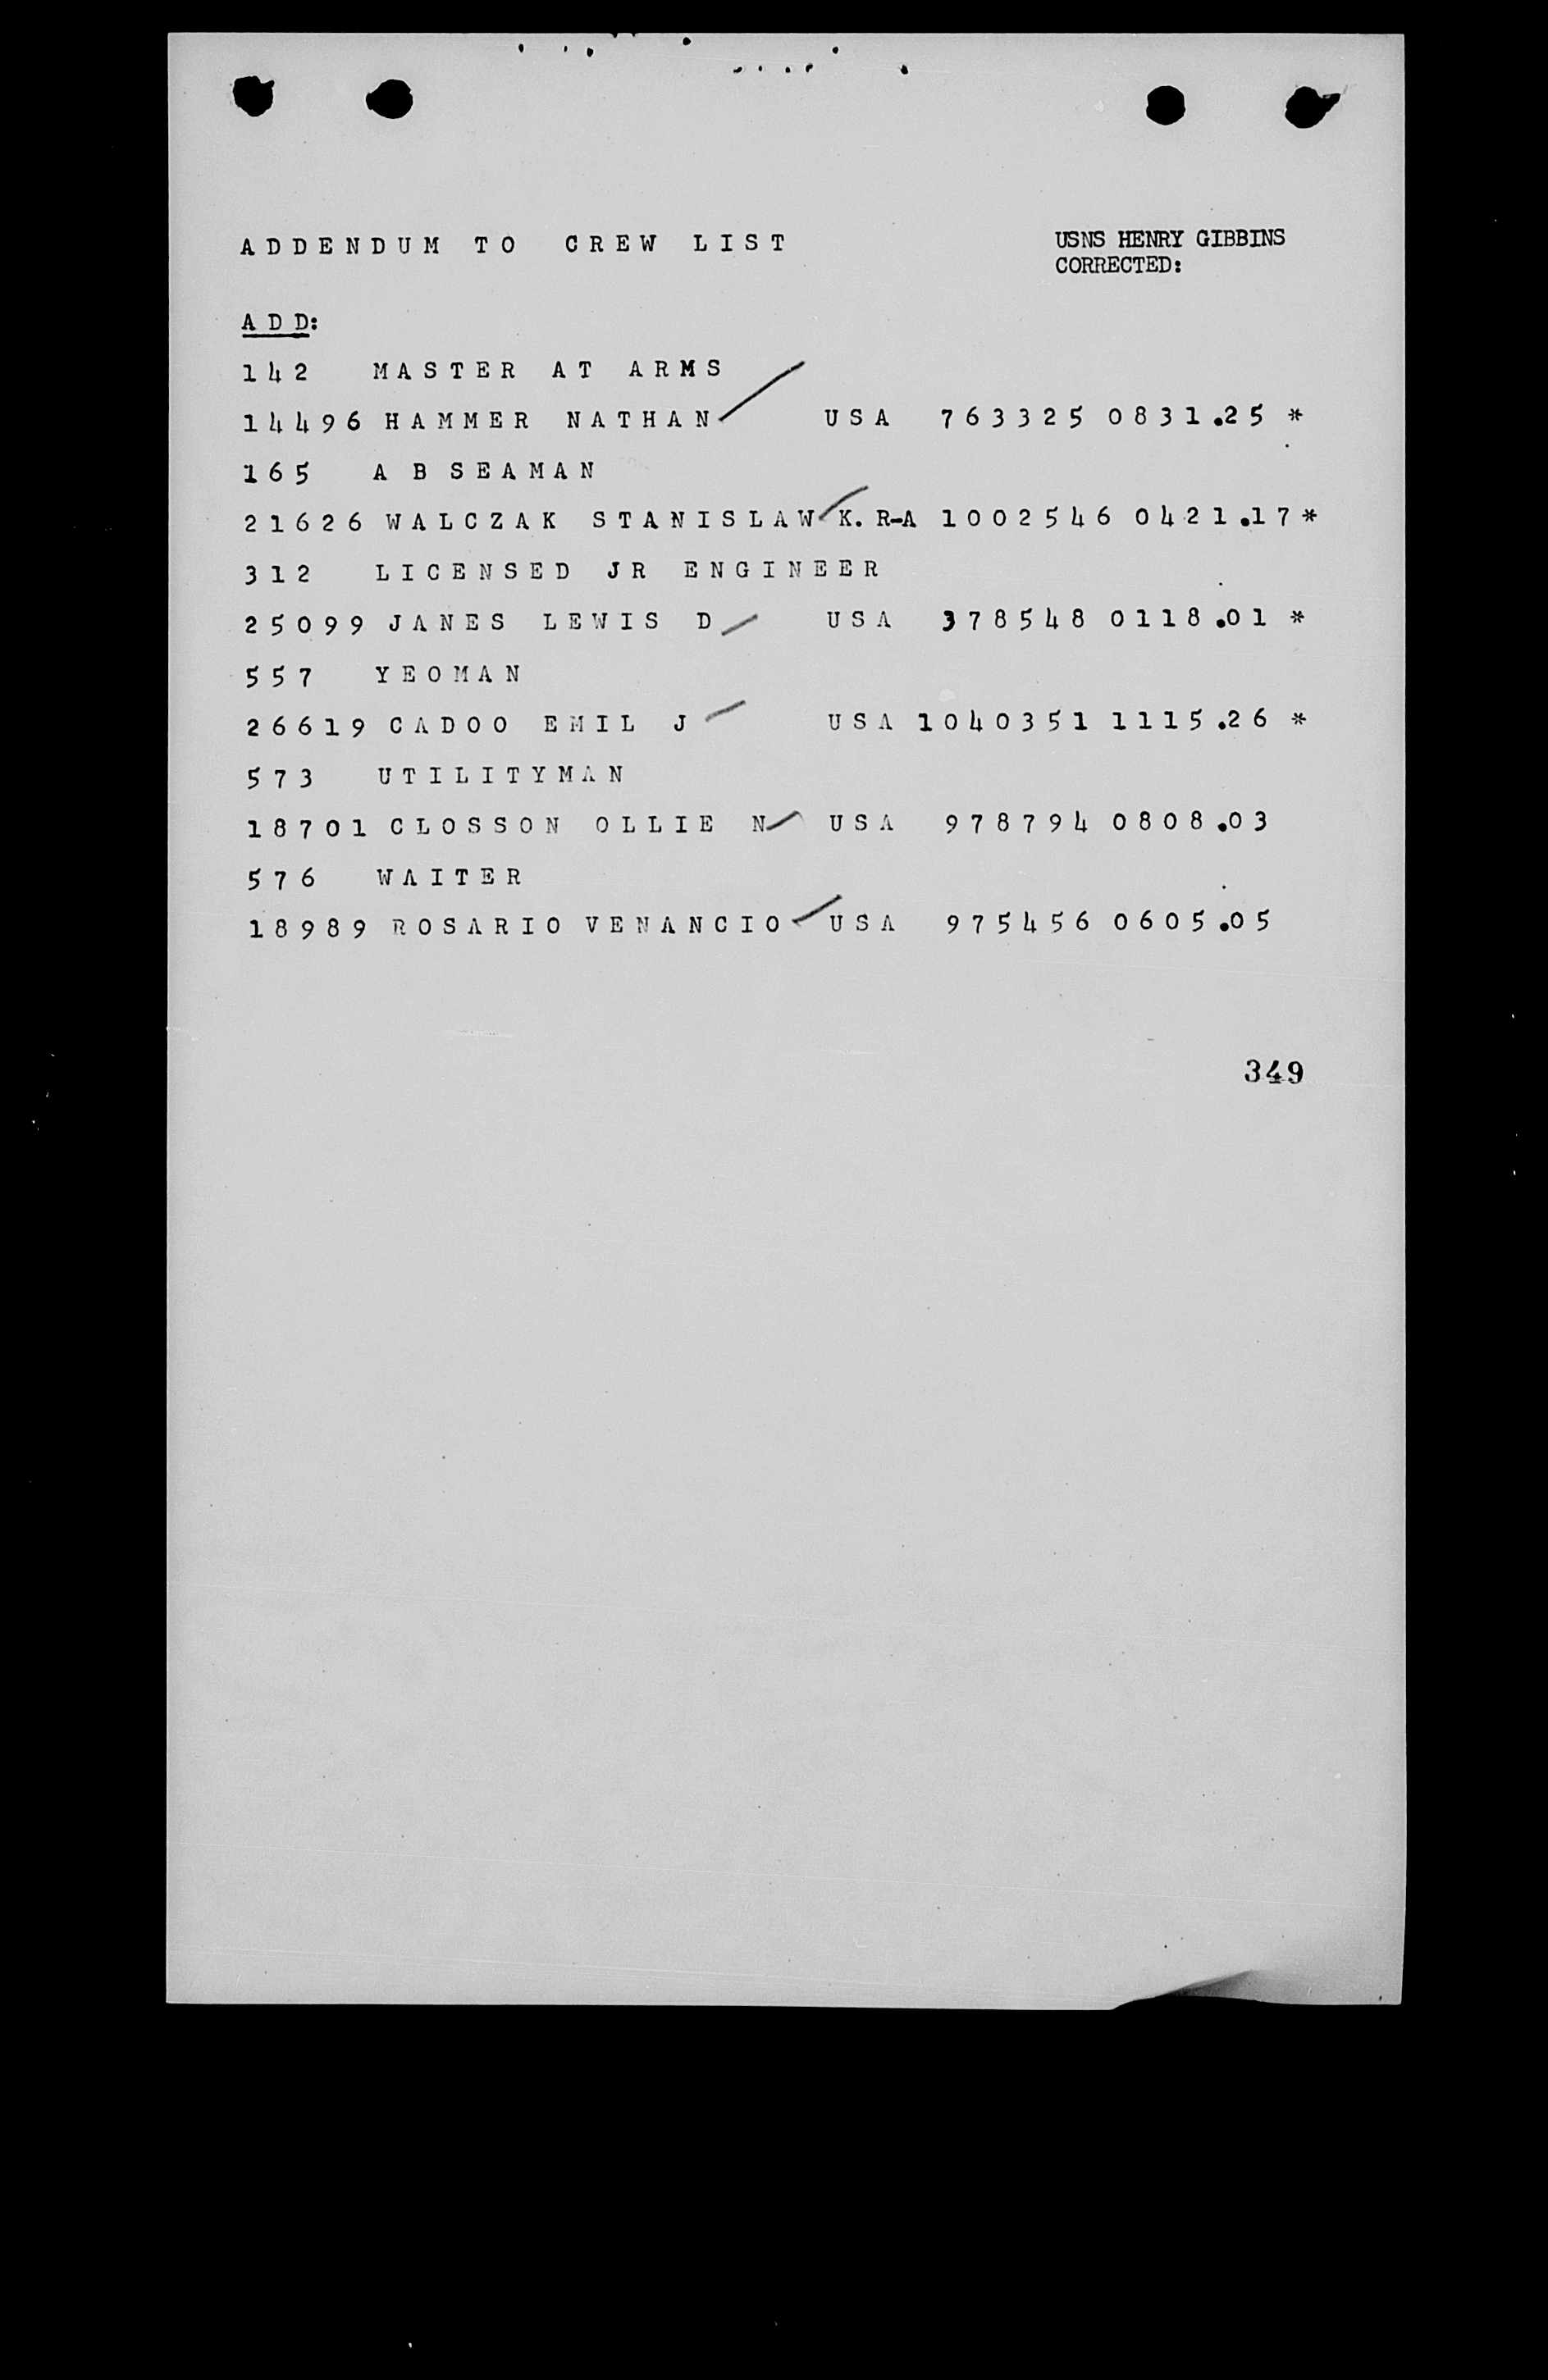 ADDENDUM TO CREW LIST
USNS HENRY GIBBINS
CORRECTED:
ADD:
142 MASTER AT ARMS
14496 HAMMER NATHAN USA 763325 0831.25 *
165 A B SEAMAN
21626 WALCZAK STANISLAW K. R-A 1002546 0421.17 *
312 LICENSED JR ENGINEER
25099 JANES LEWIS D USA 378548 0118.01 *
557 YEOMAN
26619 CADOO EMIL J USA 1040351 1115.26 *
573 UTILITYMAN
18701 CLOSSON OLLIE N USA 978794 0808.03
576 WAITER
18989 ROSARIO VENANCIO USA 975456 0605.05
349